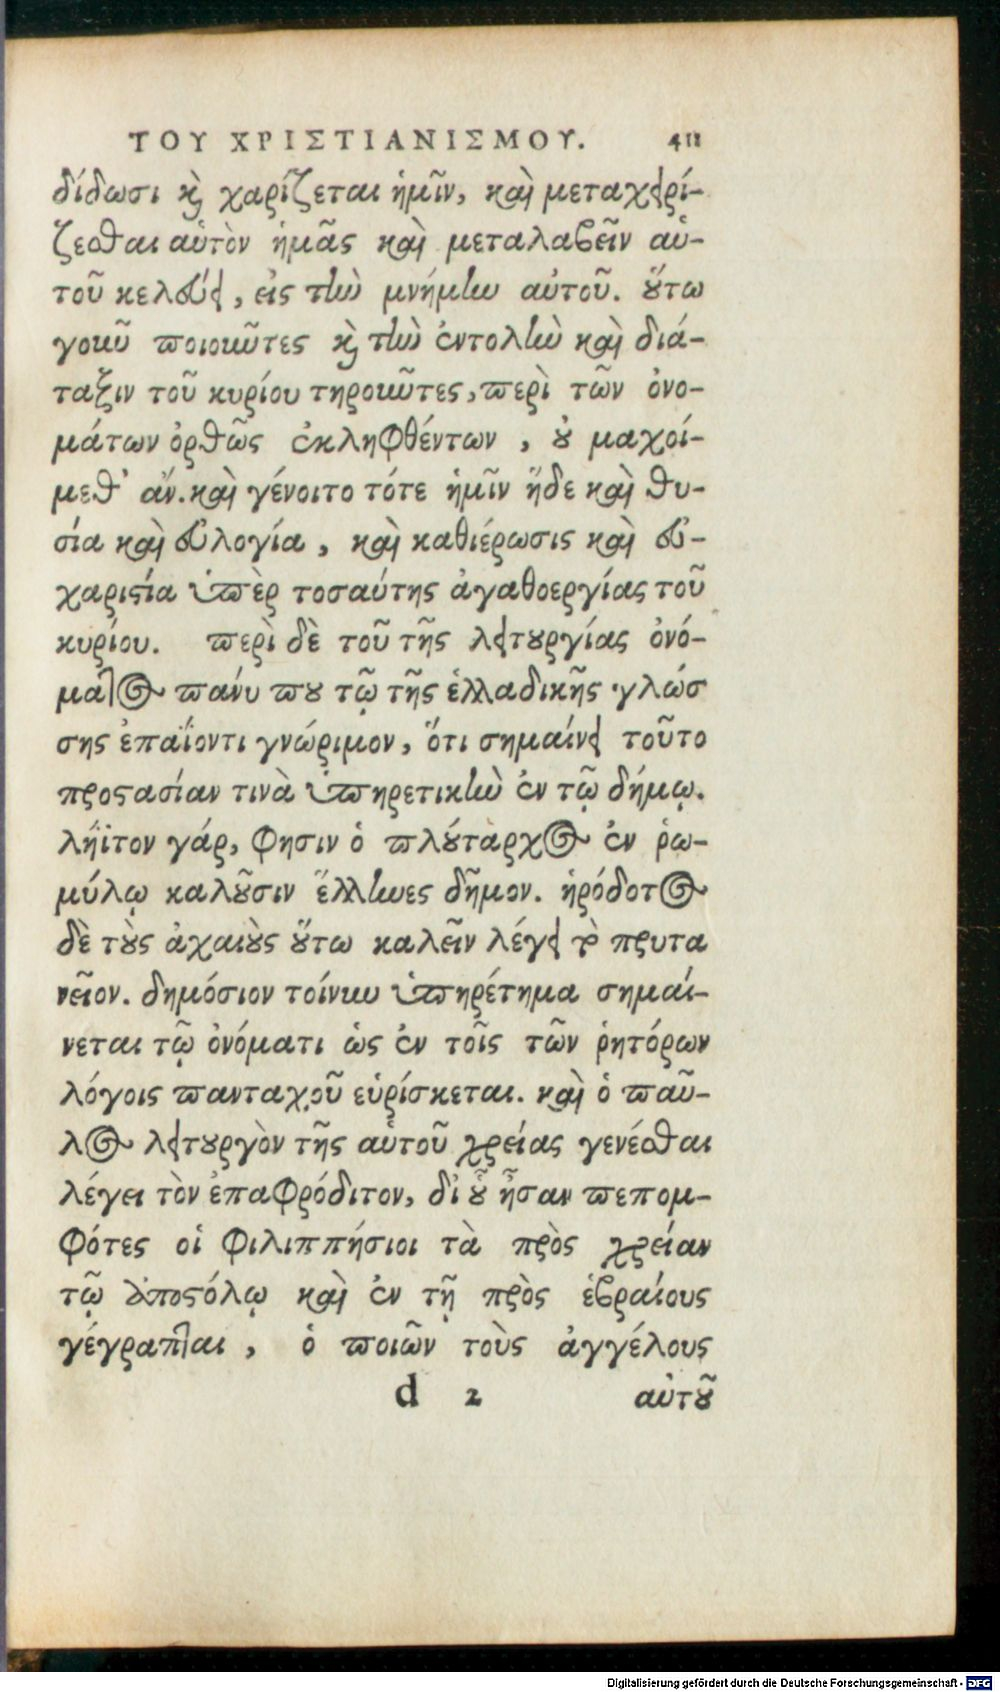 ΤΟΥ ΧΡΙΣΤΙΑΝΙΣΜΟΥ. 411
δίδωσι καὶ χαρίζεται ἡμῖν, καὶ μεταχειρί-
ζεσθαι αὐτὸν ἡμᾶς καὶ μεταλαβεῖν αὐ-
τοῦ κελεύει, εἰς τὴν μνήμην αὐτοῦ. οὕτω
γοῦν ποιοῦντες καὶ τὴν ἐντολὴν καὶ διά-
ταξιν τοῦ κυρίου τηροῦντες, περὶ τῶν ὀνο-
μάτων ὀρθῶς ἐκληφθέντων, οὐ μαχοί-
μεθ' ἄν. καὶ γένοιτο τότε ἡμῖν ἥδε καὶ θυ-
σία καὶ εὐλογία, καὶ καθιέρωσις καὶ εὐ-
χαριστία ὑπὲρ τοσαύτης ἀγαθοεργίας τοῦ
κυρίου. περὶ δὲ τοῦ τῆς λειτουργίας ὀνό-
ματος πάνυ που τῷ τῆς ἑλλαδικῆς γλώσ
σης ἐπαΐοντι γνώριμον, ὅτι σημαίνει τοῦτο
προστασίαν τινὰ ὑπηρετικὴν ἐν τῷ δήμῳ.
λήϊτον γάρ, φησιν ὁ πλούταρχος ἐν ῥω-
μύλῳ καλοῦσιν ἕλληνες δῆμον. ἡρόδοτος
δὲ τοὺς ἀχαιοὺς οὕτω καλεῖν λέγει τὸ πρυτα
νεῖον. δημόσιον τοίνυν ὑπηρέτημα σημαί-
νεται τῷ ὀνόματι ὡς ἐν τοῖς τῶν ῥητόρων
λόγοις πανταχοῦ εὑρίσκεται. καὶ ὁ παῦ-
λος λειτουργὸν τῆς αὐτοῦ χρείας γενέσθαι
λέγει τὸν ἐπαφρόδιτον, δι' οὗ ἦσαν πεπομ-
φότες οἱ φιλιππήσιοι τὰ πρὸς χρείαν
τῷ ἀποστόλῳ καὶ ἐν τῇ πρὸς ἑβραίους
γέγραπται, ὁ ποιῶν τοὺς ἀγγέλους
d 2 αὐτοῦ
Digitalisierung gefördert durch die Deutsche Forschungsgemeinschaft - DFG